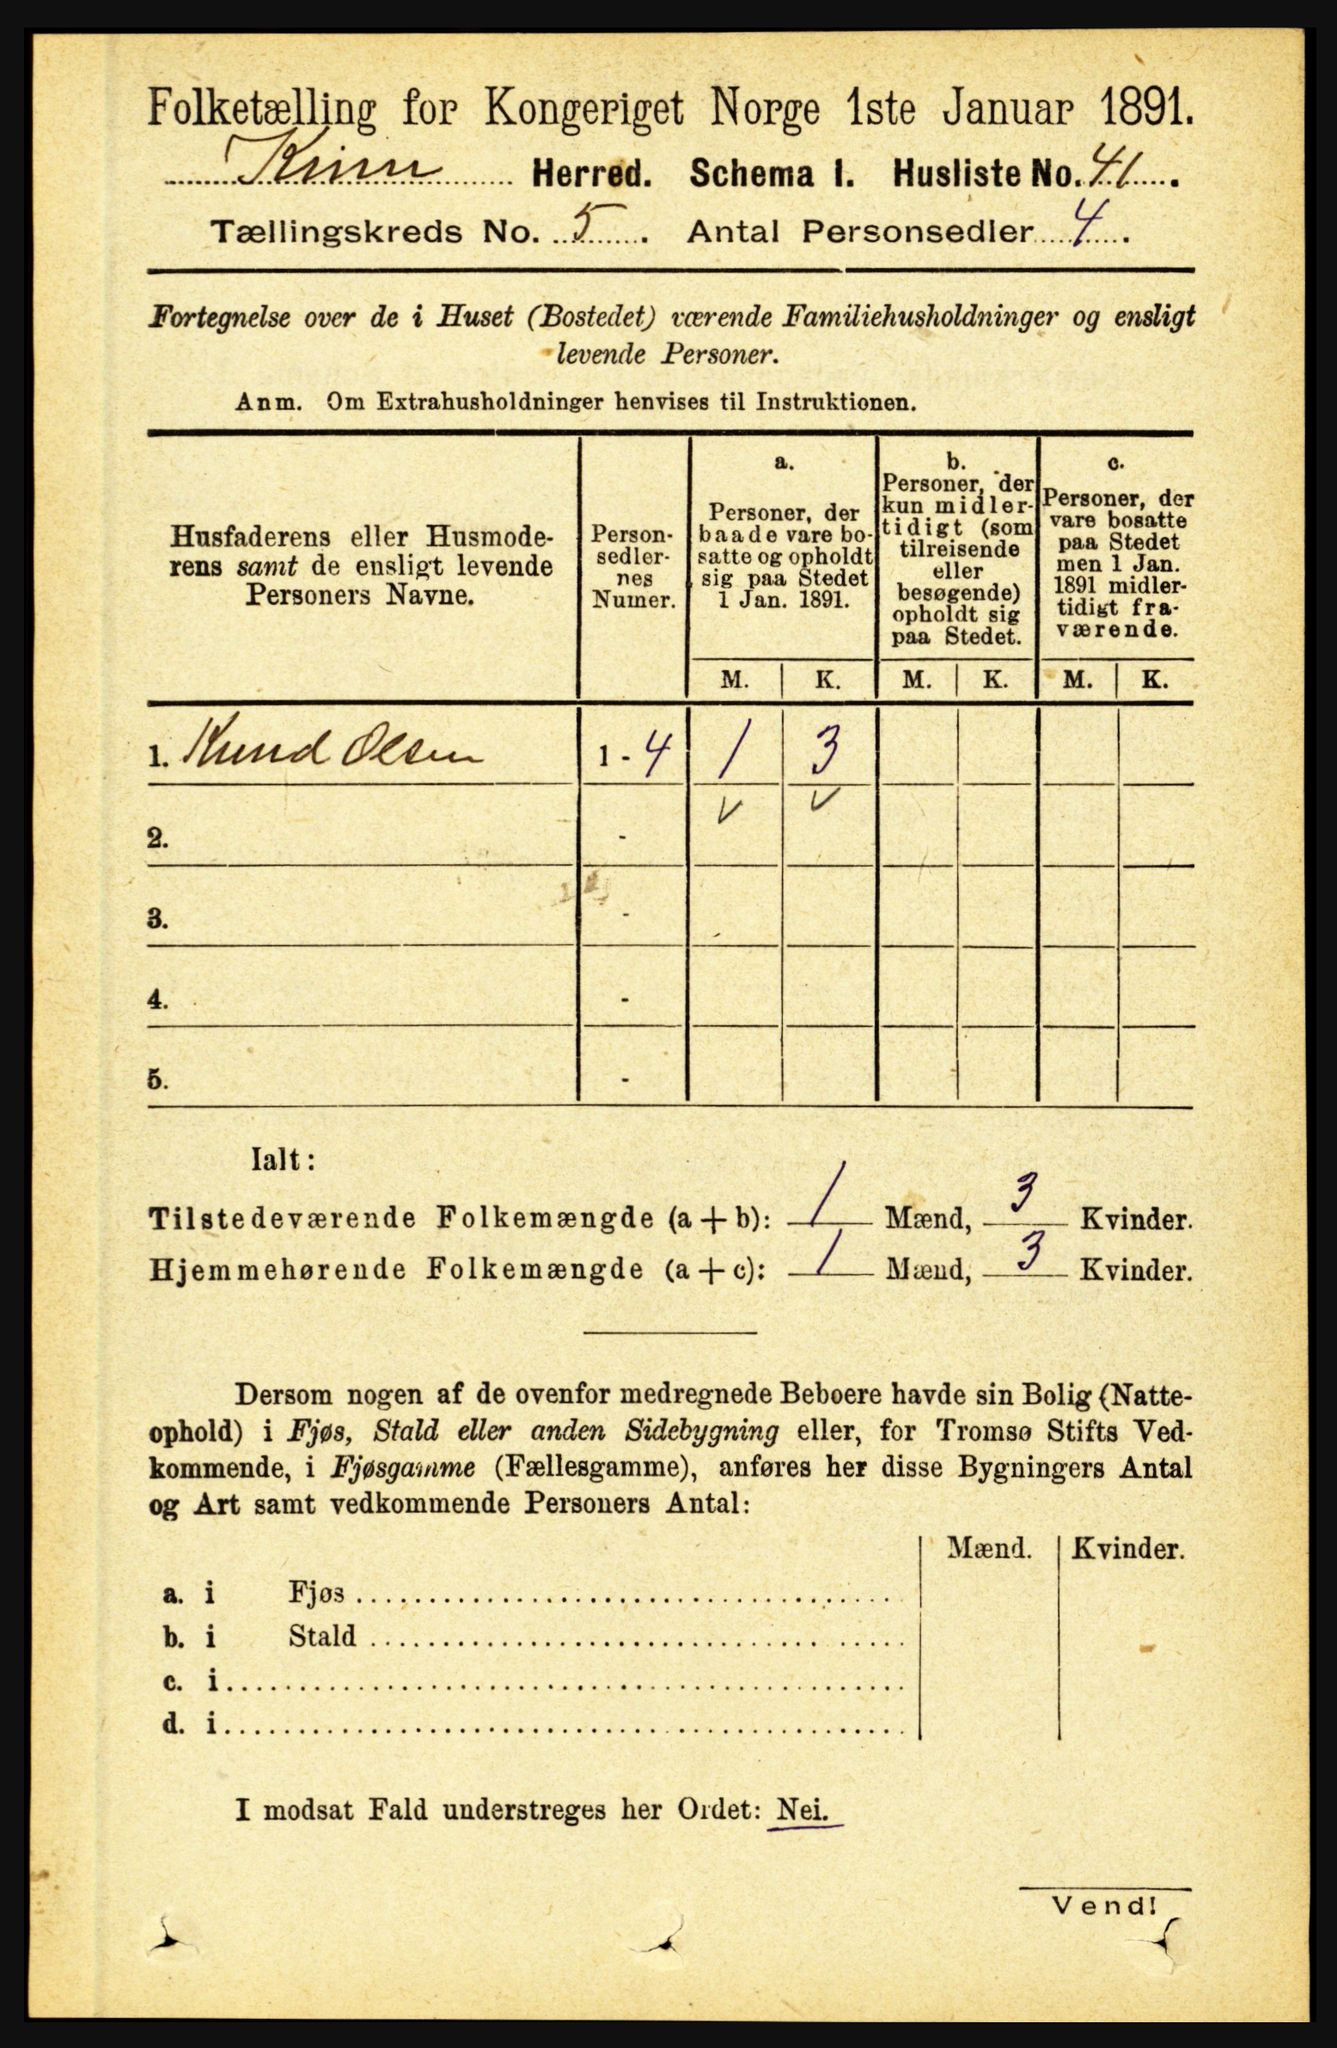 Folketælling for Kongeriget Norge 1ste Januar 1891.
Kinn Herred. Schema I. Husliste No. 41.
Tællingskreds No. 5. Antal Personsedler 4.
Fortegnelse over de i Huset (Bostedet) værende Familiehusholdninger og ensligt
levende Personer.
Anm. Om Extrahusholdninger henvises til Instruktionen.
Husfaderens eller Husmode-
rens samt de ensligt levende
Personers Navne.
Person-
sedler-
nes
Numer.
a.
Personer, der
baade vare bo-
satte og opholdt
sig paa Stedet
1 Jan. 1891.
b.
Personer, der
kun midler-
tidigt (som
tilreisende
eller
besøgende)
opholdt sig
paa Stedet.
c.
Personer, der
vare bosatte
paa Stedet
men 1 Jan.
1891 midler-
tidigt fra-
værende.
M. K. M. K. M. K.
1. Knud Olsen 1 - 4 1 3
2. -
3. -
4. -
5. -
Ialt:
Tilstedeværende Folkemængde (a + b): 1 Mænd, 3 Kvinder.
Hjemmehørende Folkemængde (a + c): 1 Mænd, 3 Kvinder.
Dersom nogen af de ovenfor medregnede Beboere havde sin Bolig (Natte-
ophold) i Fjøs, Stald eller anden Sidebygning eller, for Tromsø Stifts Ved-
kommende, i Fjøsgamme (Fællesgamme), anføres her disse Bygningers Antal
og Art samt vedkommende Personers Antal:
Mænd. Kvinder.
a. i Fjøs
b. i Stald
c. i
d. i
I modsat Fald understreges her Ordet: Nei.
Vend!